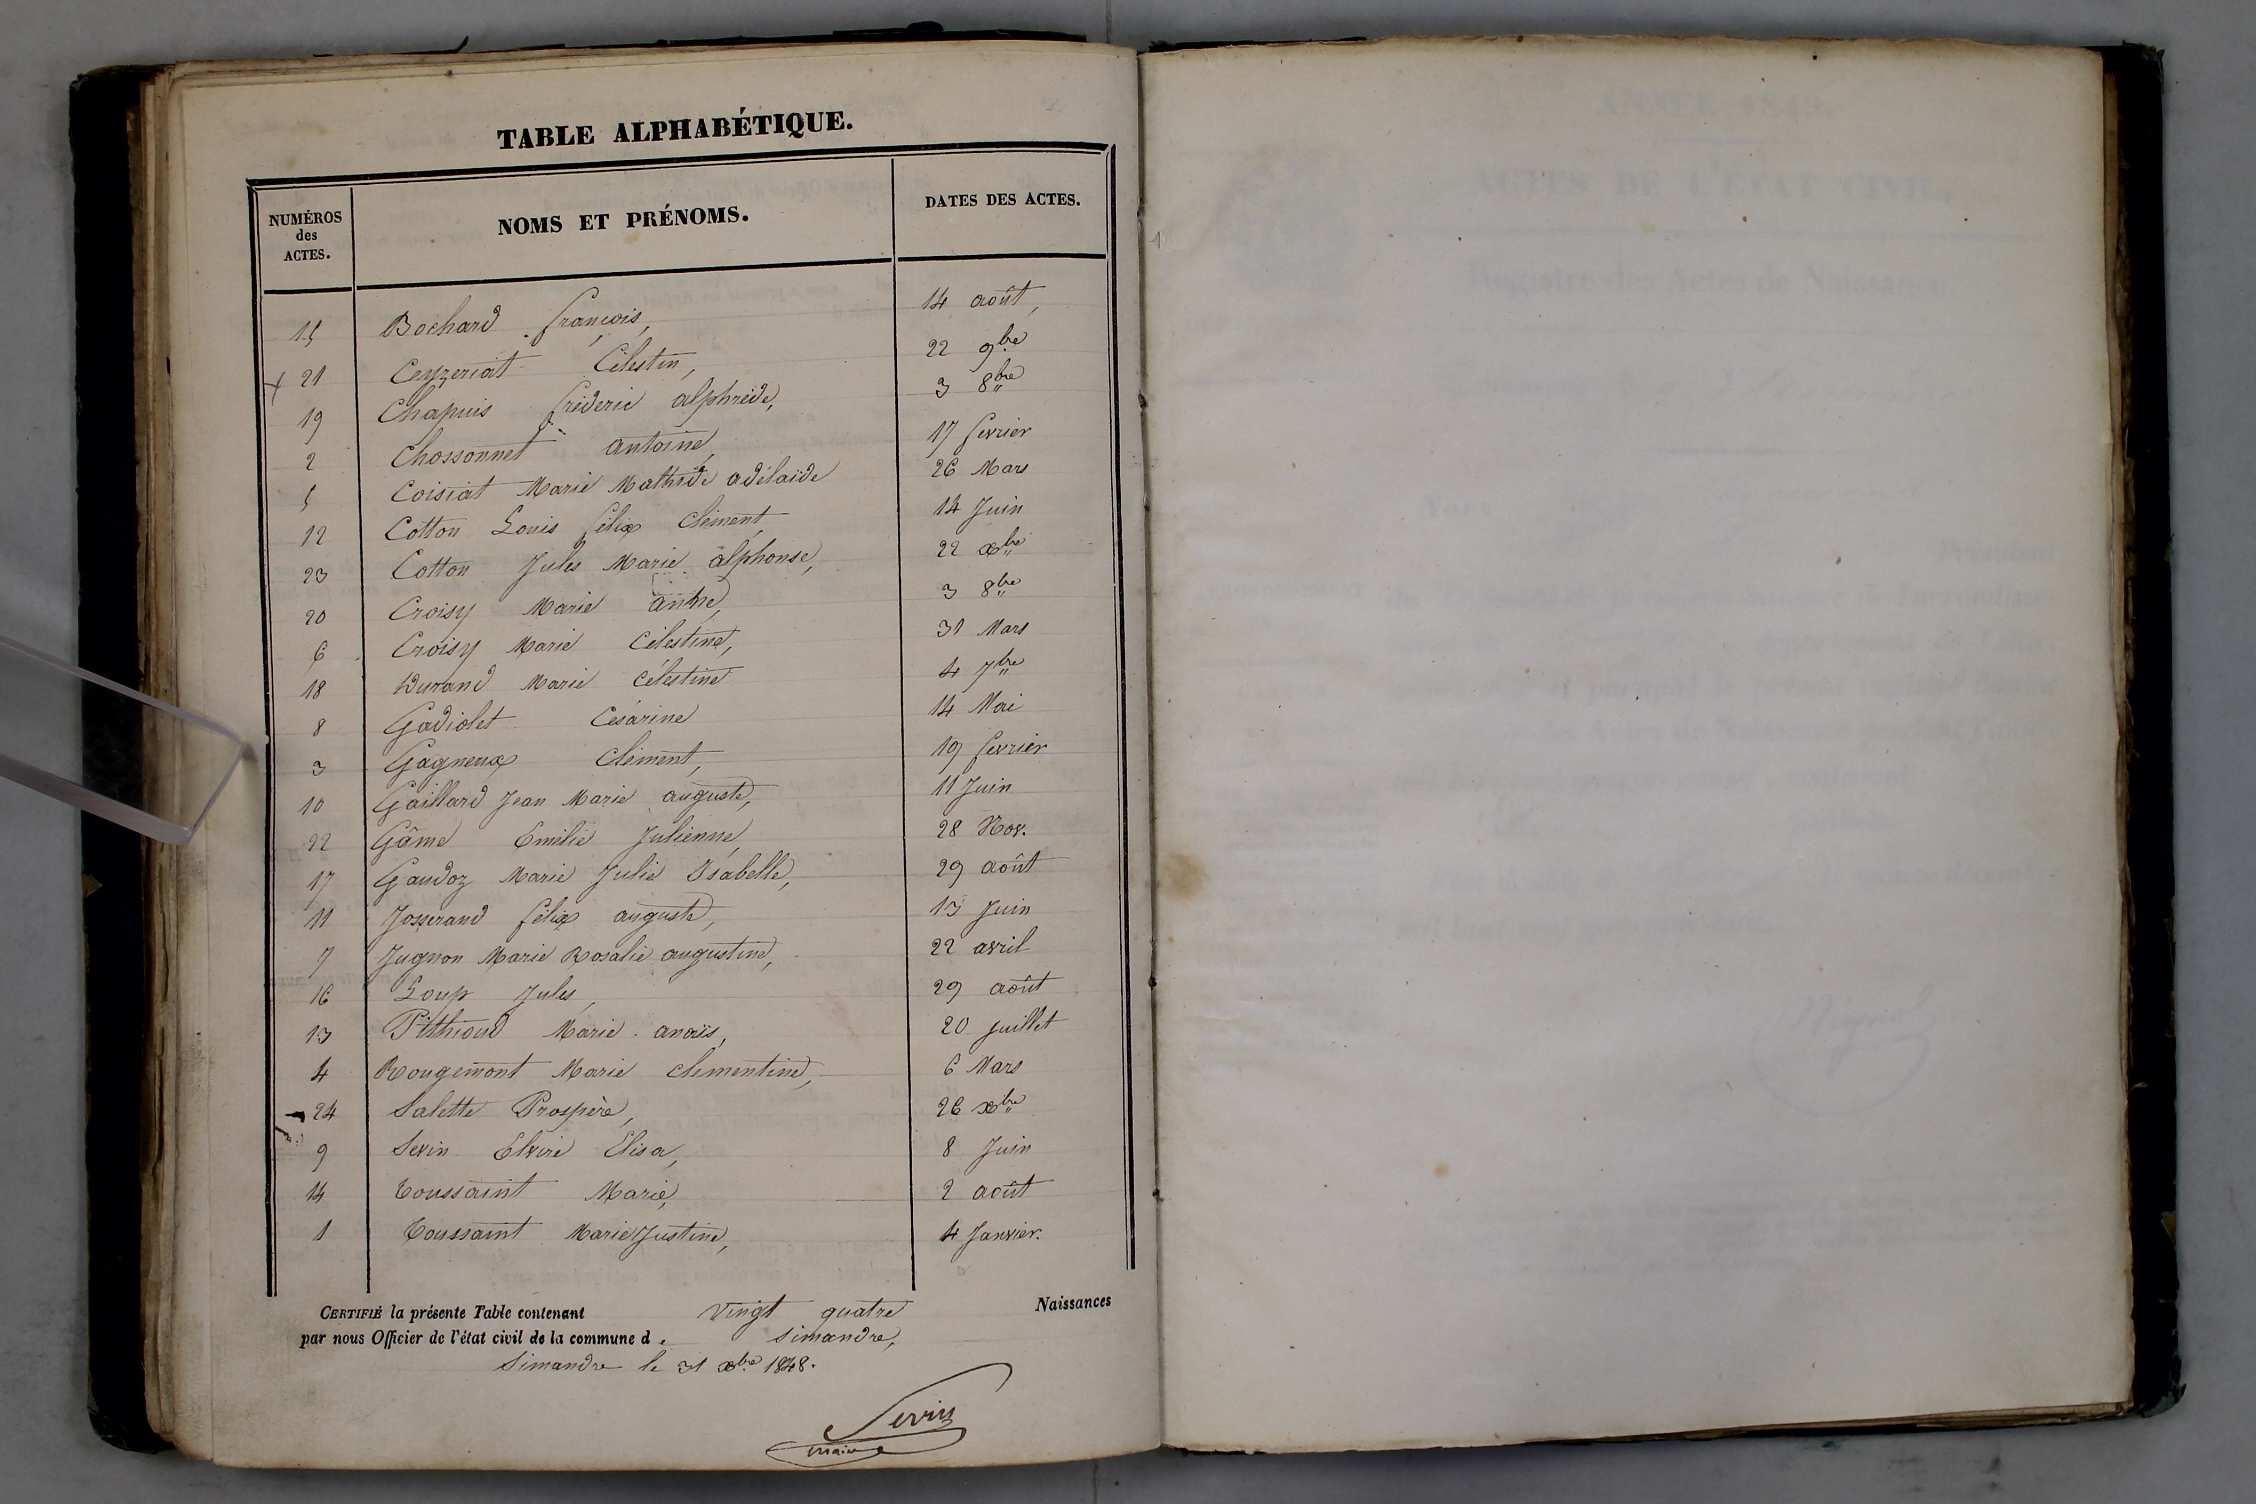 TABLE ALPHABÉTIQUE.
NUMÉROS des ACTES. NOMS ET PRÉNOMS. DATES DES ACTES.
15 Bochard françois, 14 août,
21 Ceyzeriat Célestin, 22 9bre
19 Chapuis fréderic alphrede, 3 8bre
2 Chossonnet antoine, 17 fevrier
5 Coisiat Marie Mathide adélaïde 26 Mars
12 Cotton Louis félix Clément, 14 Juin
23 Cotton Jules Marie alphonse, 22 xbre
20 Croisy Marie anne, 3 8bre
6 Croisy Marie Célestine, 31 Mars
18 Durand Marie Célestine 4 7bre
8 Gadiolet Césarine 14 Mai
3 Gagneux Clément, 19 fevrier
10 Gaillard Jean Marie auguste, 11 Juin
22 Gâme Emilie Julienne, 28 Nov.
17 Gaudoz Marie Julie Isabelle, 29 août
11 Josserand félix auguste, 13 Juin
7 Jugnon Marie Rosalie augustine, 22 avril
16 Loup Jules, 29 août
13 Pithioud Marie anaïs, 20 juillet
4 Rougemont Marie Clementine, 6 Mars
24 Salette Prospère, 26 xbre
9 Sevin Elvire Elisa, 8 Juin
14 Toussaint Marie, 2 août
1 Toussaint Marie Justine, 4 Janvier.
CERTIFIÉ la présente Table contenant Vingt quatre Naissances
par nous Officier de l'état civil de la commune d e Simandre,
Simandre le 31 xbre 1848.
Servin
maire